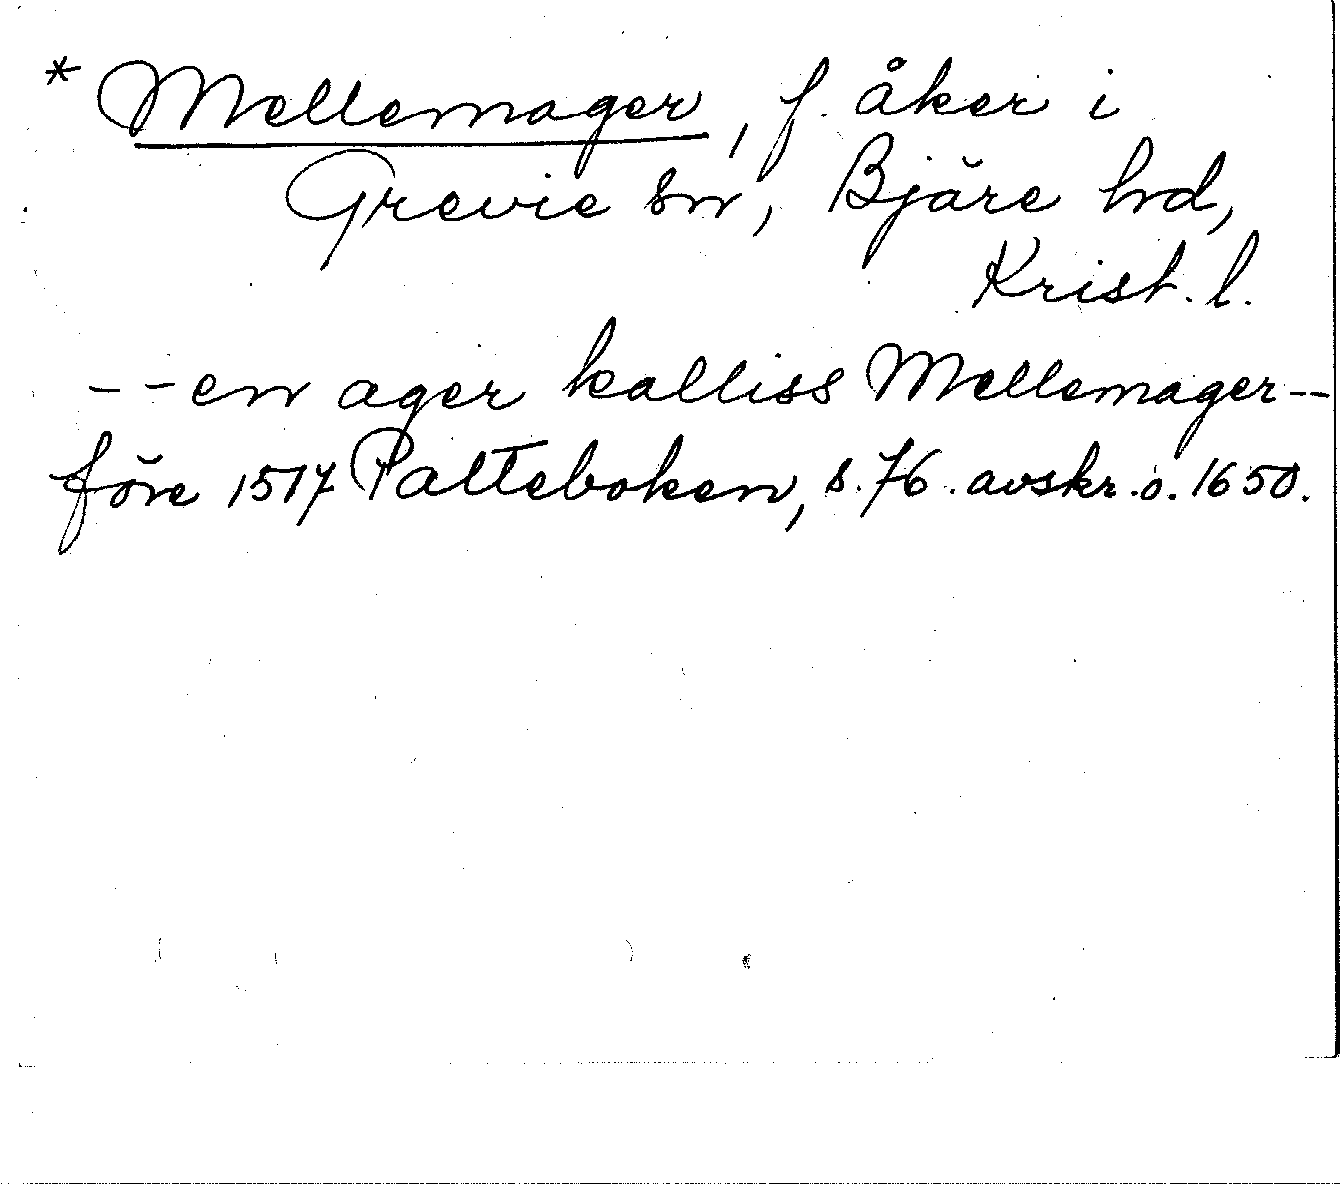 * Mellemager, f. åker i
Grevie sn, Bjäre hd,
Krist. l.
--en ager kalliss Mellemager--
före 1517 Palteboken, s. 76. avskr. o. 1650.